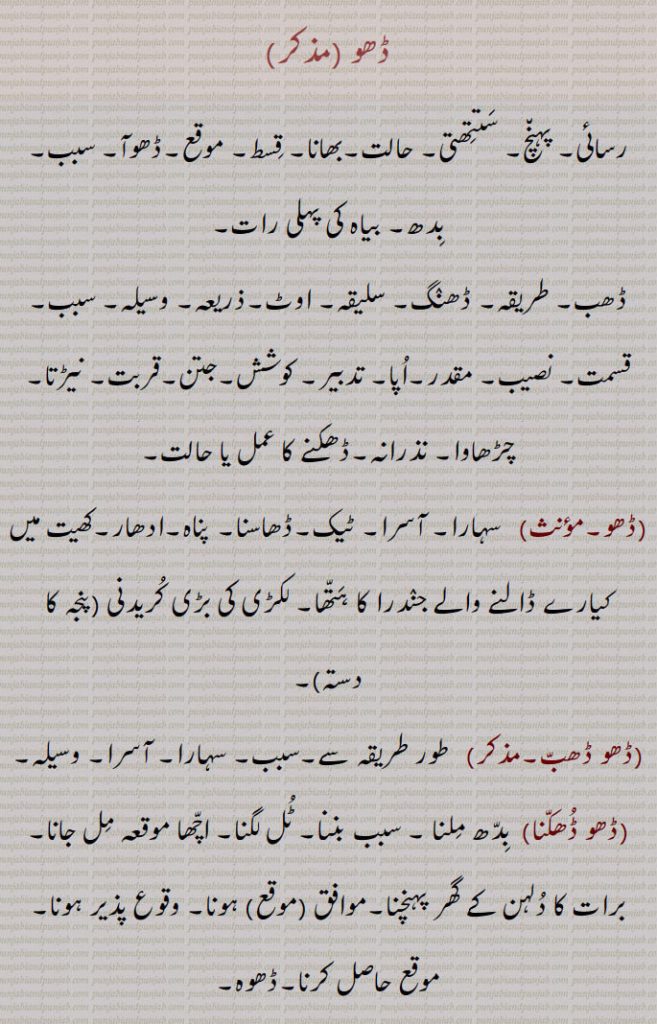 ڈھو (مذکر)
رسائی۔ پہنچّ۔ سَتِتھتی۔ حالت۔بھانا۔ قِسط۔ موقع۔ڈھوآ۔ سبب۔
بِدھ۔ بیاہ کی پہلی رات۔
ڈھب۔ طریقہ۔ ڈھنگ۔ سلیقہ۔ اوٹ۔ذریعہ۔ وسیلہ۔ سبب۔
قسمت۔ نصیب۔ مقدر۔اُپا۔ تدبیر۔ کوشش۔جتن۔قربت۔ نیڑتا۔
چڑھاوا۔ نذرانہ۔ڈھکنے کا عمل یا حالت۔
(ڈھو۔مؤنث) سہارا۔ آسرا۔ ٹیک۔ڈھاسنا۔ پناہ۔ادھار۔کھیت میں
کیارے ڈالنے والے جندرا کا ہَتھّا۔ لکڑی کی بڑی کُریدنی (پنجہ کا
دستہ)۔
(ڈھو ڈھبّ۔مذکر) طور طریقہ سے۔سبب۔ سہارا۔ آسرا۔ وسیلہ۔
(ڈھو ڈُھکَنّا) بِدّھ مِلنا ۔ سبب بننا۔ ٹُل لگنا۔ اچھّا موقعہ مِل جانا۔
برات کا دُلہن کے گھر پہنچنا۔موافق (موقع) ہونا۔ وقوع پذیر ہونا۔
موقع حاصل کرنا۔ڈھوہ۔